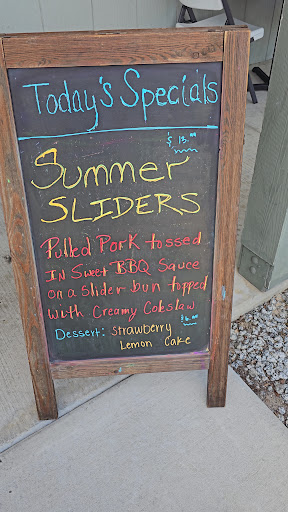 Today's Specials
$13.00
Summer
SLIDERS
Pulled Pork tossed
IN Sweet BBQ Sauce
on a slider bun topped
with Creamy Coleslaw
$6.00
Dessert: Strawberry
Lemon Cake